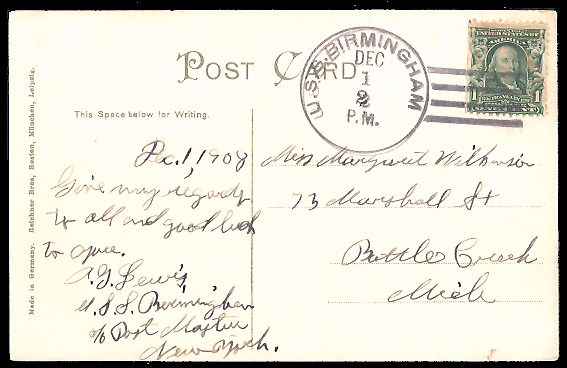 POST CARD
U.S.S. BIRMINGHAM
DEC
1
2
P.M.
1 1
This Space below for Writing.
Made in Germany. Reichner Bros, Boston, München, Leipzig.
Dec. 1, 1908
Give my regards
to all and good luck
to you.
A.G. Lewis
U.S.S. Birmingham
c/o Post Master
New York.
Miss Margaret Wilkinson
73 Marshall St
Battle Creek
Mich